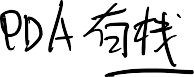 PDA 有栈